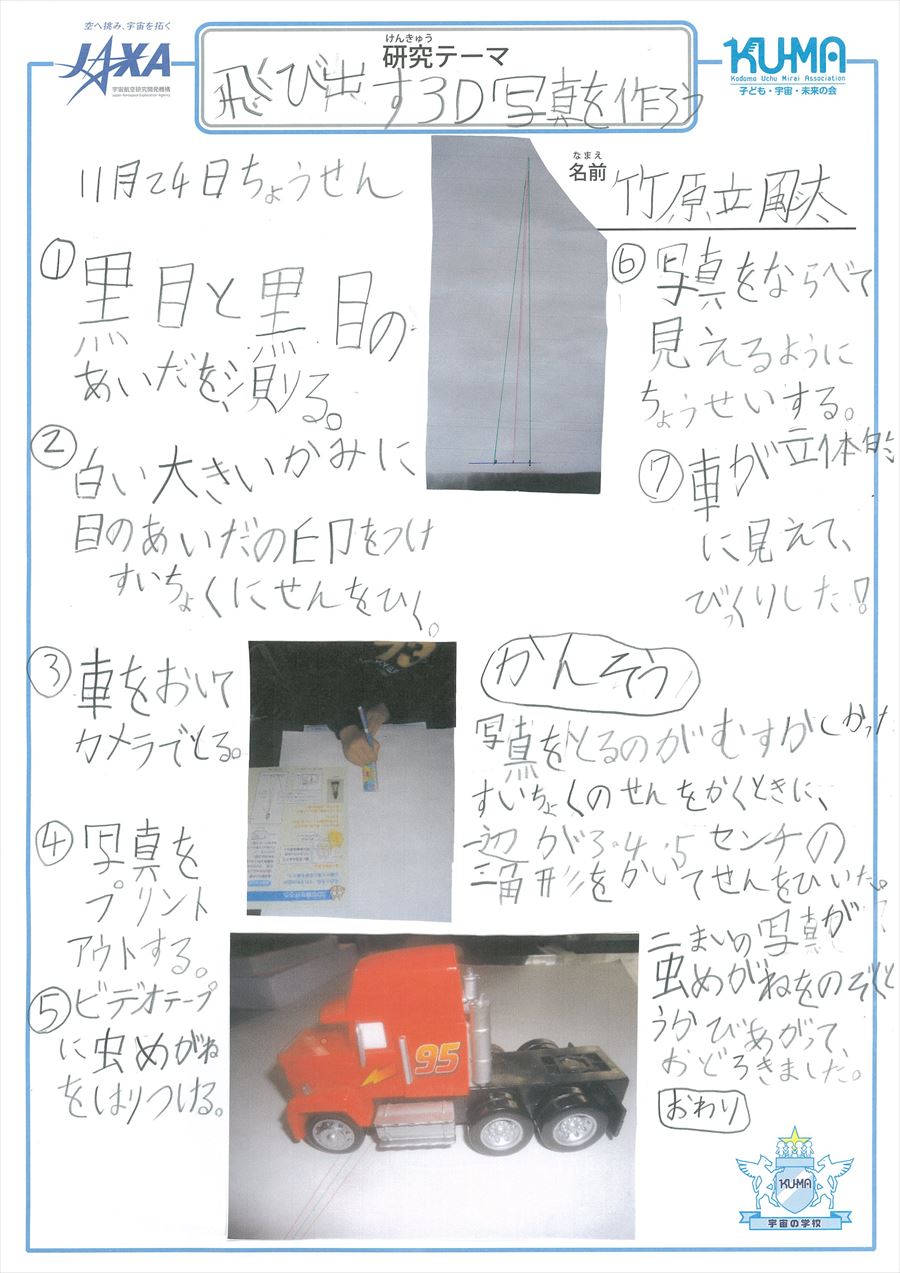 空へ挑み、宇宙を拓く
JAXA
宇宙航空研究開発機構
Japan Aerospace Exploration Agency
けんきゅう
研究テーマ
飛び出す3D写真を作ろう
KU-MA
Kodomo Uchu Mirai Association
子ども・宇宙・未来の会
11月24日ちょうせん
なまえ
名前
竹原立
①黒目と黒目の
あいだを、測る。
②白い大きいかみに
目のあいだの印をつけ
すいちょくにせんをひく。
③車をおいて
カメラでとる。
④写真を
プリント
アウトする。
⑤ビデオテープ
に虫めがね
をはりつける。
⑥写真をならべて
見えるように
ちょうせいする。
⑦車が立体的
に見えて、
びっくりした!
かんそう
写真をとるのがむすかしかった
すいちょくのせんをかくときに、
一辺が3・4・5センチの
三角形をかいてせんをひいた。
二まいの写真が
虫めがねをのぞくと
うかびあがって
おどろきました。
おわり
95
KU-MA
宇宙の学校